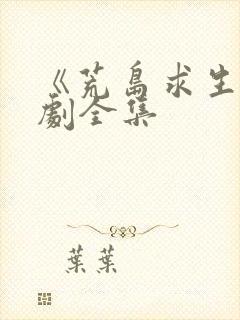 《荒島求生
劇全集
葉葉